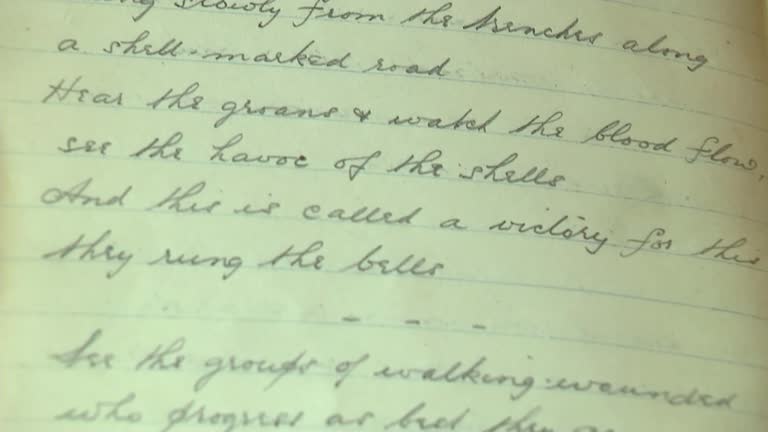 slowly from the trenches along
a shell-marked road
Hear the groans & watch the blood flow,
see the havoc of the shells
And this is called a victory for this
they rung the bells
- - -
See the groups of walking-wounded
who progress as best they